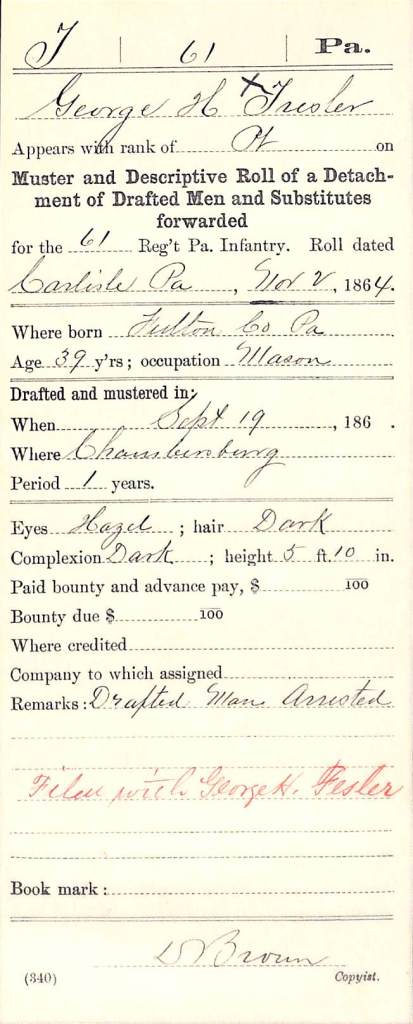 T | 61 | Pa.
George H × Tresler
Appears with rank of Pt on
Muster and Descriptive Roll of a Detach-
ment of Drafted Men and Substitutes
forwarded
for the 61 Reg't Pa. Infantry. Roll dated
Carlisle Pa, Nov 2, 1864.
Where born Fulton Co Pa
Age 39 y'rs; occupation Mason
Drafted and mustered in:
When Sept 19, 186 .
Where Chambersburg
Period 1 years.
Eyes Hazel; hair Dark
Complexion Dark; height 5 ft. 10 in.
Paid bounty and advance pay, $ 100
Bounty due $ 100
Where credited
Company to which assigned
Remarks: Drafted Man Arrested
Filed with George H. Fesler
Book mark:
Brown
(340) Copyist.